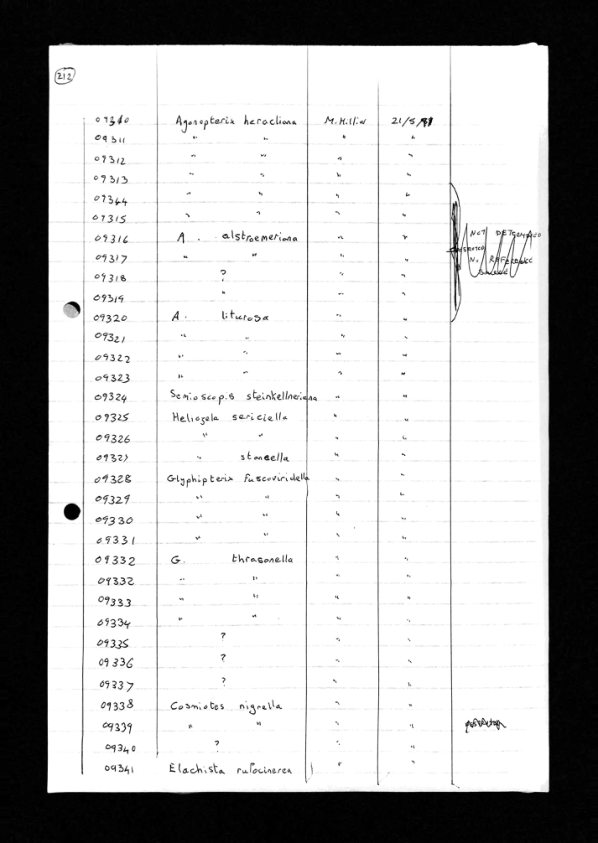 212
09310 Agonopterix heracliana M. Hillier 21/5/81
09311 " " " "
09312 " " " "
09313 " " " "
09344 " " " "
09315 " " " "
09316 A. alstroemeriana " " NOT
09317 " " " "
09318 ? " " No REFERENCE
09319 " " "
09320 A. liturosa " "
09321 " " " "
09322 " " " "
09323 " " " "
09324 Semioscopis steinkellneriana " "
09325 Heliozela sericiella " "
09326 " " " "
09327 " staneella " "
09328 Glyphipterix fuscoviridella " "
09329 " " " "
09330 " " " "
09331 " " " "
09332 G. thrasonella " "
09332 " " " "
09333 " " " "
09334 " " " "
09335 ? " "
09336 ? " "
09337 ? " "
09338 Cosmiotes nigrella " "
09339 " " " "
09340 ? " "
09341 Elachista rufocinerea " "